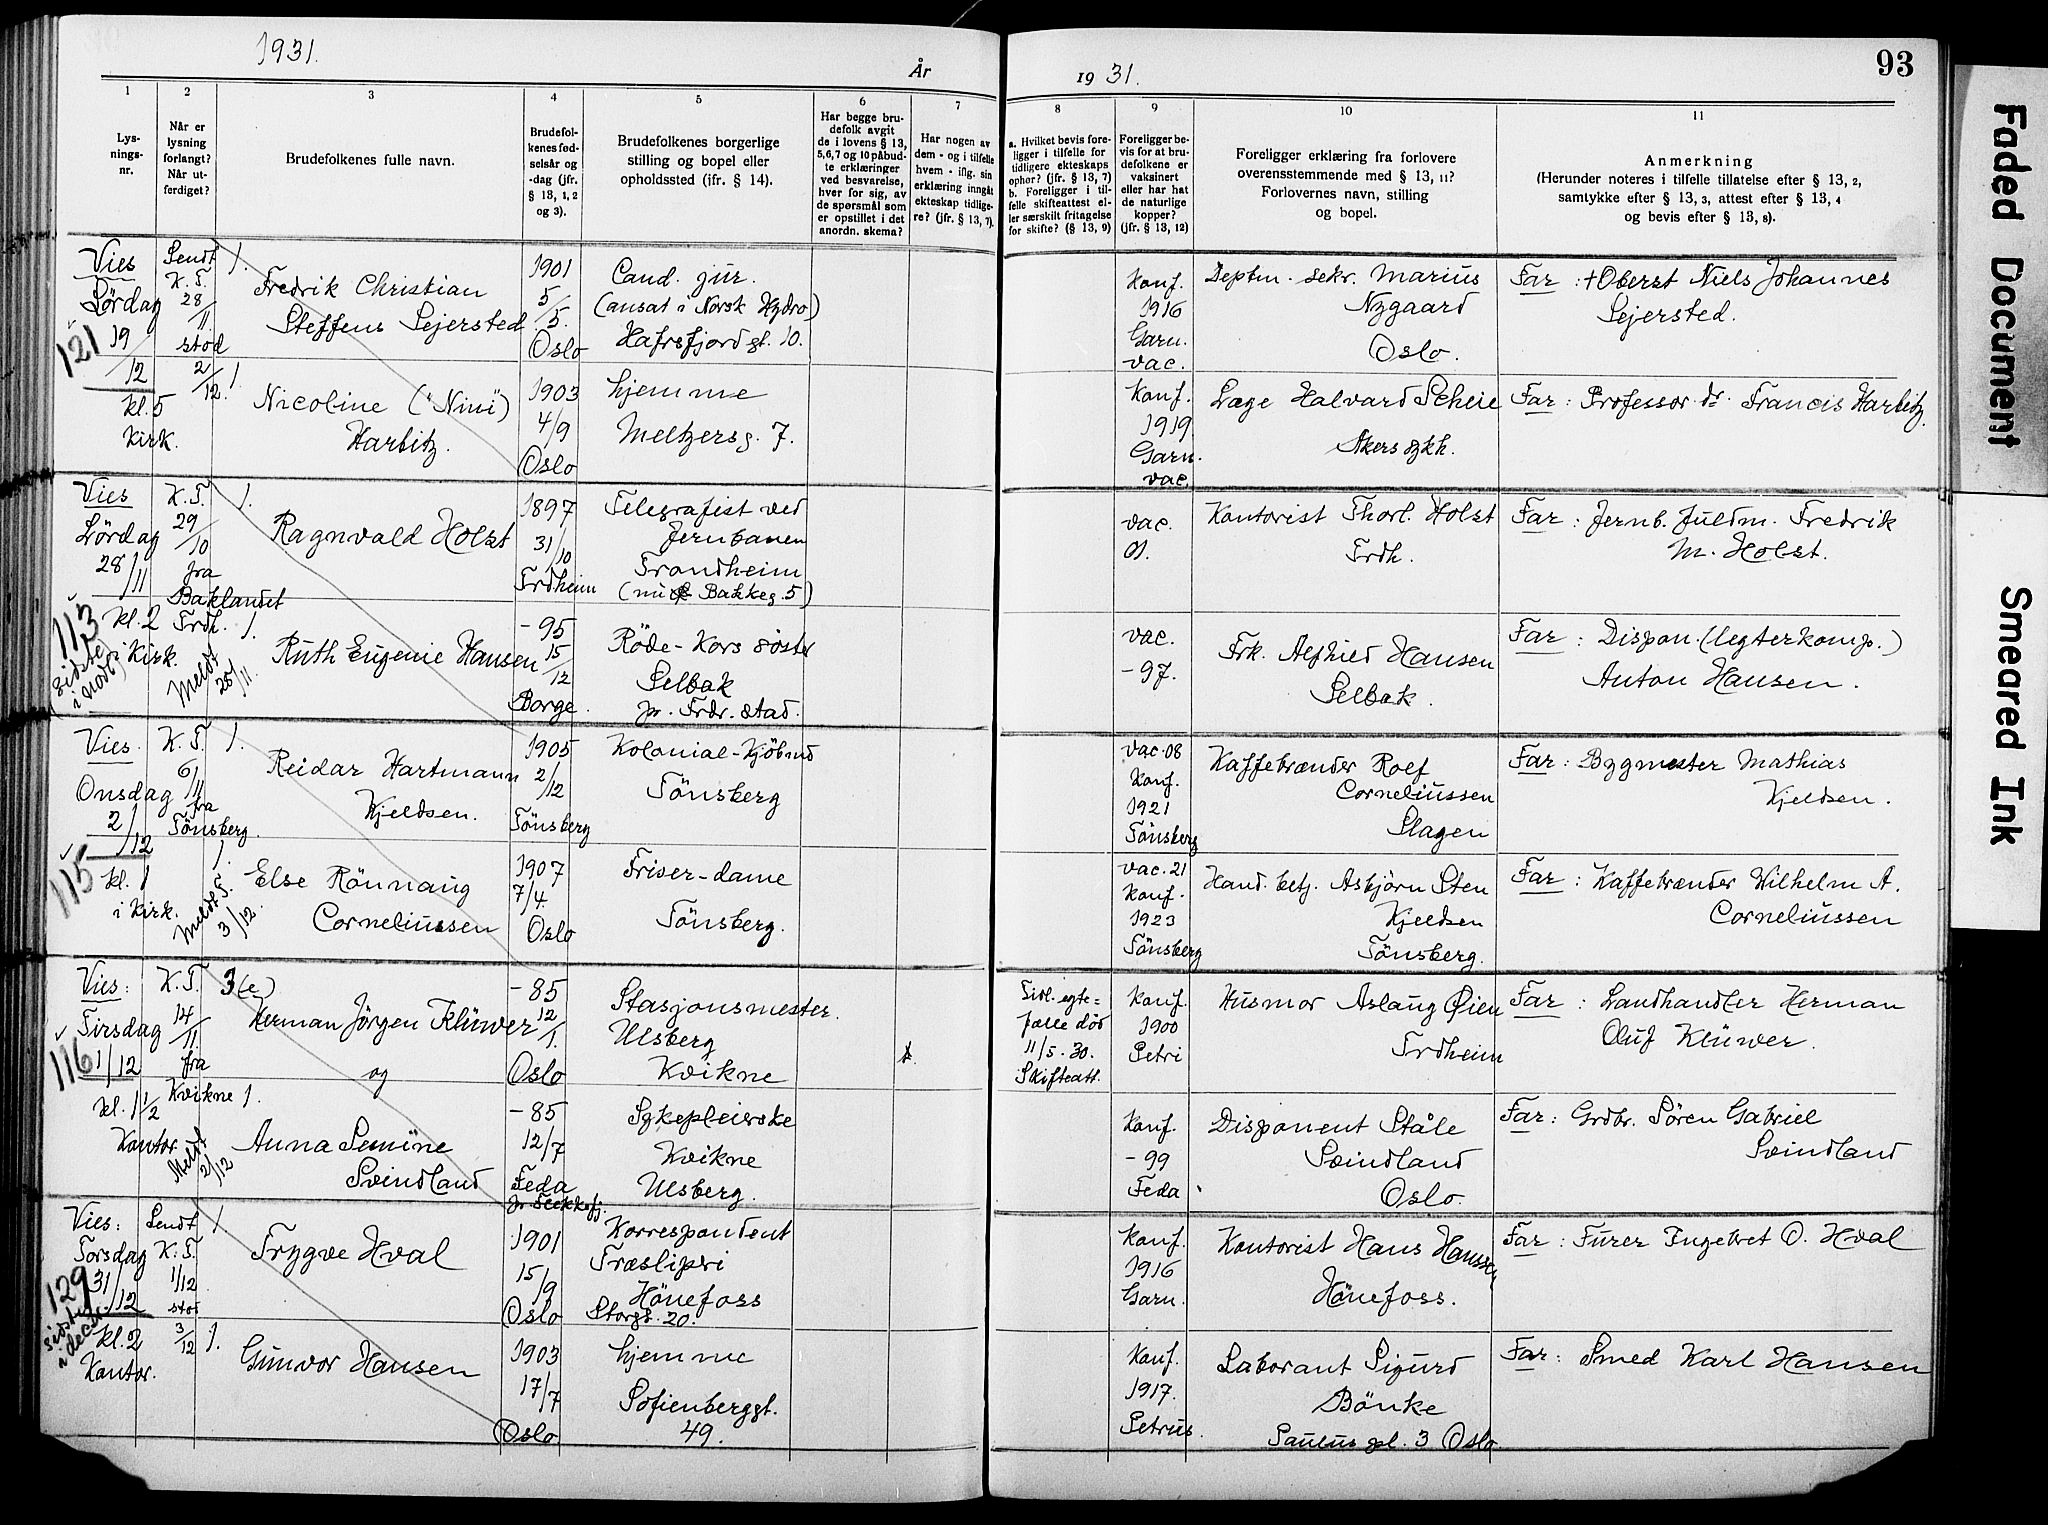 1931.
År
1931.
93
1
Lys-
nings-
nr.
2
Når er
lysning
forlangt?
Når ut-
ferdiget?
3
Brudefolkenes fulle navn.
4
Brudefol-
kenes fød-
selsår og
-dag (jfr.
§ 13, 1, 2
og 3).
5
Brudefolkenes borgerlige
stilling og bopel eller
opholdssted (ifr. § 14).
6
Har begge bru-
defolk avgit
de i lovens § 13,
5,6,7 og 10 påbud-
te erklæringer
ved besvarelse,
hver for sig, av
de spørsmål som
er opstillet i det
anordn. skema?
7
Har nogen av
dem - og i tilfelle
hvem - iflg. sin
erklæring inngåt
ekteskap tidlige-
re? (jfr. § 13, 7).
8
a. Hvilket bevis fore-
ligger i tilfelle for
tidligere ekteskaps
ophør? (jfr. § 13, 7)
b. Foreligger i til-
felle skifteattest el-
ler særskilt fritagelse
for skifte? (§ 13, 9)
9
Foreligger be-
vis for at bru-
defolkene er
vaksinert
eller har hat
de naturlige
kopper?
(jfr. § 13, 12)
10
Foreligger erklæring fra forlovere
overensstemmende med § 13, 11?
Forlovernes navn, stilling
og bopel.
11
Anmerkning
(Herunder noteres i tilfelle tillatelse efter § 13, 2,
samtykke efter § 13, 3, attest efter § 13, 4
og bevis efter § 13, 8).
121
Vies
Lördag
19/12
kl. 5
Kirk.
Sendt
K. T.
28/11.
stod
2/12.
1.
Fredrik Christian
Steffens Sejersted
1901
5/5.
Oslo
Cand. jur.
(ansat i Norsk Hydro)
Hafrsfjordgt. 10.
Konf.
1916
Garn.
vac.
Deptm. sekr. Marius
Nygaard
Oslo.
Far: +Oberst Niels Johannes
Sejersted.
1.
Nicoline ("Nini")
Harbitz.
1903
4/9
Oslo
hjemme
Meltzersg. 7.
Konf.
1919
Garn.
vac.
Læge Halvard Scheie
Akers sykh.
Far: Professor dr. Francis Harbitz.
113
sidste
i nov.
Vies
Lördag
28/11
kl. 2
i Kirk.
K. T.
29/10
fra
Baklandet
Trdh.
Meldt
25/11.
1.
Ragnvald Holst
1897
31/10
Trdheim
Telegrafist ved
Jernbanen
Trondheim
(nu Bakkeg. 5)
vac.
01.
Kontorist Thorl. Holst
Trdh.
Far: Jernb. fuldm. Fredrik
M. Holst.
1.
Ruth Eugenie Hansen
-95
15/12
Borge.
Röde-Kors söster
Selbak
pr. Frdr. stad.
vac.
-97.
Frk. Alfhild Hansen
Selbak.
Far: Dispon. (legterkomp.)
Anton Hansen.
115
Vies.
Onsdag
2/12
kl. 1
i Kirk.
K. T.
6/11
fra
Tönsberg.
Meldt T.
3/12.
1.
Reidar Hartmann
Kjeldsen.
1905
2/12
Tönsberg
Kolonial-Kjöbmd
Tönsberg
vac. 08
Konf.
1921
Tönsberg
Kaffebrænder Rolf
Corneliussen
Slagen
Far: Bygmester Mathias
Kjeldsen.
1.
Else Rönnaug
Corneliussen
1907
7/4.
Oslo
Friser-dame
Tönsberg.
vac. 21
Konf.
1923
Tönsberg
Hand. betj. Asbjörn Sten
Kjeldsen
Tönsberg.
Far: Kaffebrænder Wilhelm A.
Corneliussen
116
Vies:
Tirsdag
1/12
kl. 1 1/2
Kontor.
K. T.
14/11.
fra
Kvikne
Meldt
2/12
3 (e)
Herman Jörgen Klüwer
og
-85
12/1.
Oslo
Stasjonsmester.
Ulsberg
Kvikne
Tidl. egte=
fælle död
11/5. 30.
Skifteatt.
Konf.
1900
Petri
Husmor Aslaug Øien
Trdheim
Far: Landhandler Herman
Oluf Klüwer.
1.
Anna Semine
Svindland
-85
12/7
Feda
pr. Flekkefj.
Sykepleierske
Kvikne
Ulsberg.
Konf.
-99
Feda
Disponent Ståle
Svindland
Oslo.
Far: Grdbr. Sören Gabriel
Svindland
129
sidste
i decbr.
Vies:
Torsdag
31/12
kl. 2
Kontor.
Sendt
K. T.
1/12
stod
3/12
1.
Trygve Hval
1901
15/9
Oslo
Korrespondent
Træsliperi
Hönefoss
Storgt. 20.
Konf.
1916
Garn.
Kontorist Hans Hanssen
Hönefoss.
Far: Furer Ingebret O. Hval
1.
Gunvor Hansen
1903
17/7
Oslo
hjemme
Sofienberggt.
49.
Konf.
1917.
Petrus.
Laborant Sigurd
Bönke
Paulus pl. 3 Oslo
Far: Smed Karl Hansen
Faded Document
Smeared Ink